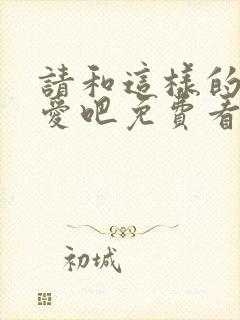 請和這樣的
愛吧免費看
初城